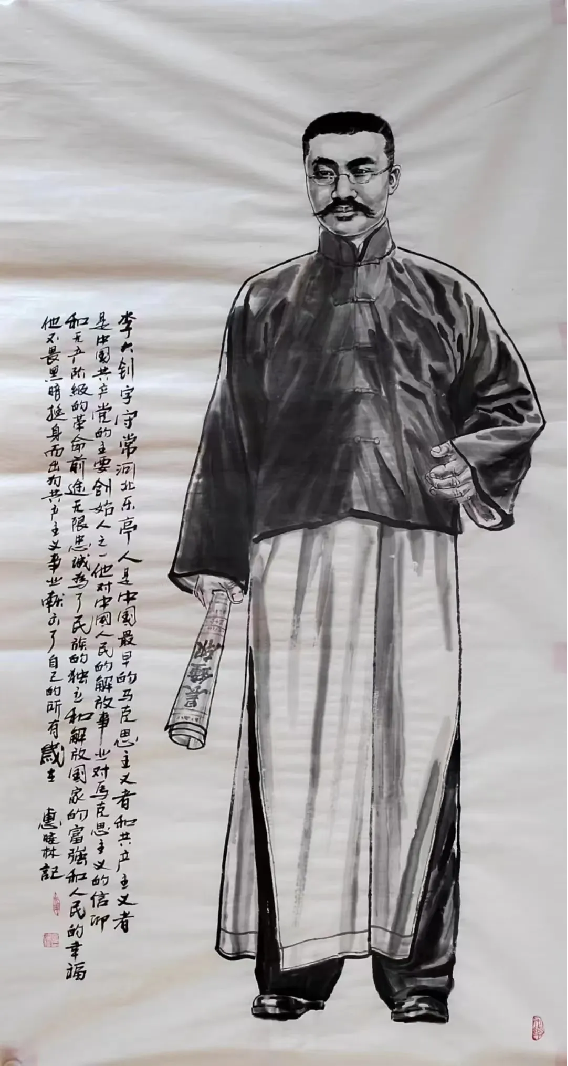 李大钊字守常河北乐亭人是中國最早的马克思主义者和共产主义者
是中國共产党的主要创始人之一他对中國人民的解放事业对马克思主义的信仰
和无产阶级的革命前途无限忠诚為了民族的独立和解放國家的富强和人民的幸福
他不畏黑暗挺身而出为共产主义事业献出了自己的所有
惠
林記
晨鐘报